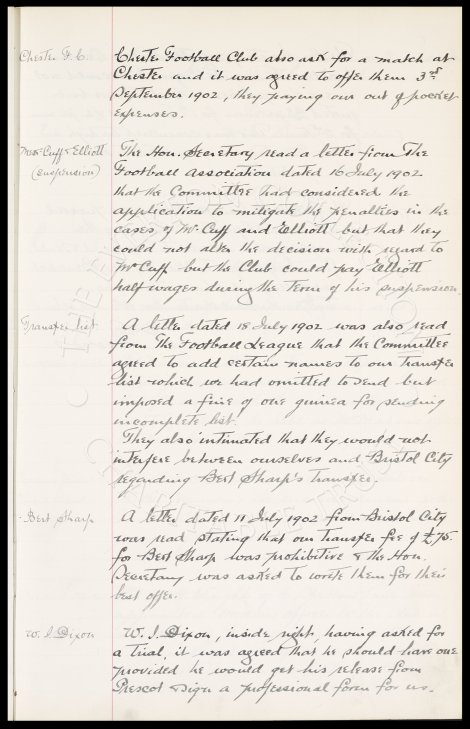 Chester F.C.
Chester Football Club also ask for a match at
Chester and it was agreed to offer them 3rd
September 1902, they paying our out of pocket
expenses.
Mess Cuff & Elliott
(suspension)
The Hon. Secretary read a letter from The
Football Association dated 16 July 1902
that the Committee had considered the
application to mitigate the penalties in the
cases of Mr Cuff and Elliott but that they
could not alter the decision with regard to
Mr Cuff but the Club could pay Elliott
half wages during the term of his suspension.
Transfer list
A letter dated 18 July 1902 was also read
from The Football League that the Committee
agreed to add certain names to our Transfer
list which we had omitted to send but
imposed a fine of one guinea for sending
incomplete list.
They also intimated that they would not
interfere between ourselves and Bristol City
regarding Bert Sharp's Transfer.
Bert Sharp
A letter dated 11 July 1902 from Bristol City
was read stating that our transfer fee of £75
for Bert Sharp was prohibitive & the Hon.
Secretary was asked to wrote them for their
best offer.
W. I Dixon
W. I. Dixon, inside right, having asked for
a trial, it was agreed that he should have one
provided he would get his release from
Prescot & sign a professional form for us.